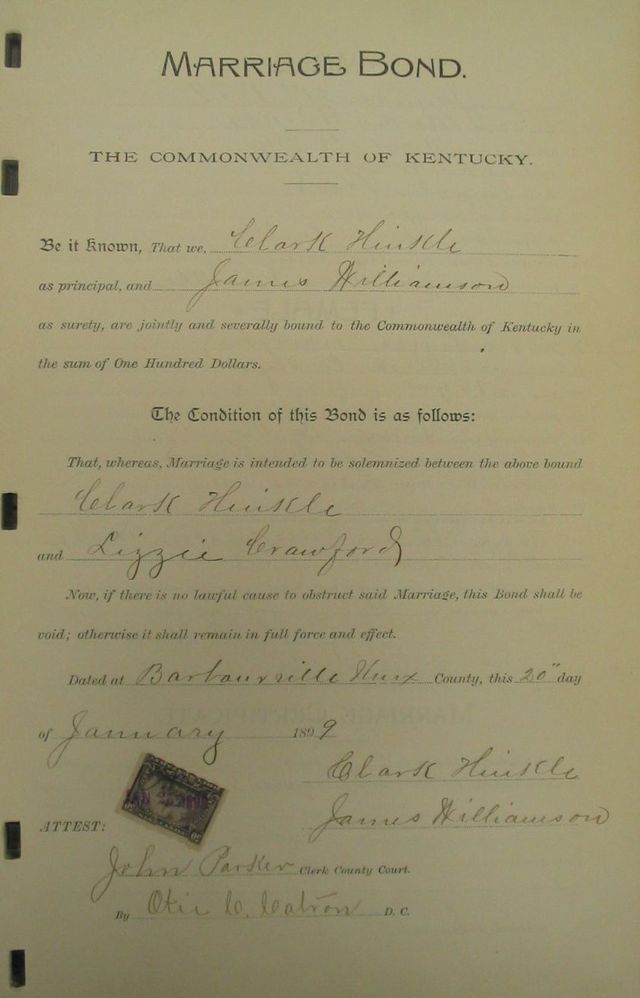 MARRIAGE BOND.
THE COMMONWEALTH OF KENTUCKY.
Be it Known, That we, Clark Hinkle
as principal, and James Williamson
as surety, are jointly and severally bound to the Commonwealth of Kentucky in
the sum of One Hundred Dollars.
The Condition of this Bond is as follows:
That, whereas, Marriage is intended to be solemnized between the above bound
Clark Hinkle
and Lizzie Crawford
Now, if there is no lawful cause to obstruct said Marriage, this Bond shall be
void; otherwise it shall remain in full force and effect.
Dated at Barbourville Knox County, this 20" day
of January 1899
Clark Hinkle
James Williamson
ATTEST:
John Parker Clerk County Court.
By Otis C. Catron D. C.